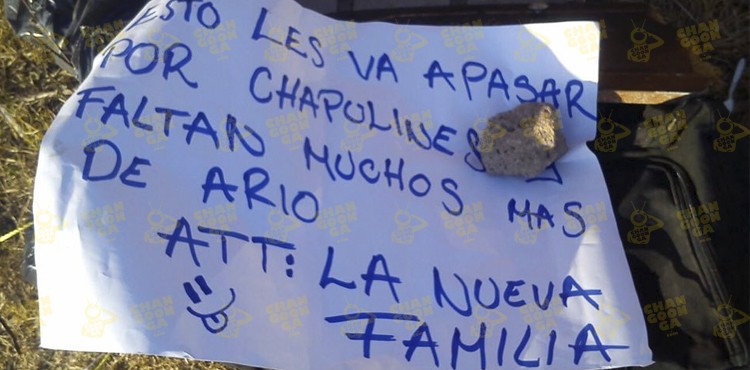 ESTO LES VA APASAR
POR CHAPULINES
FALTAN MUCHOS MAS
DE ARIO
ATT: LA NUEVA
FAMILIA
CHANGOONGA